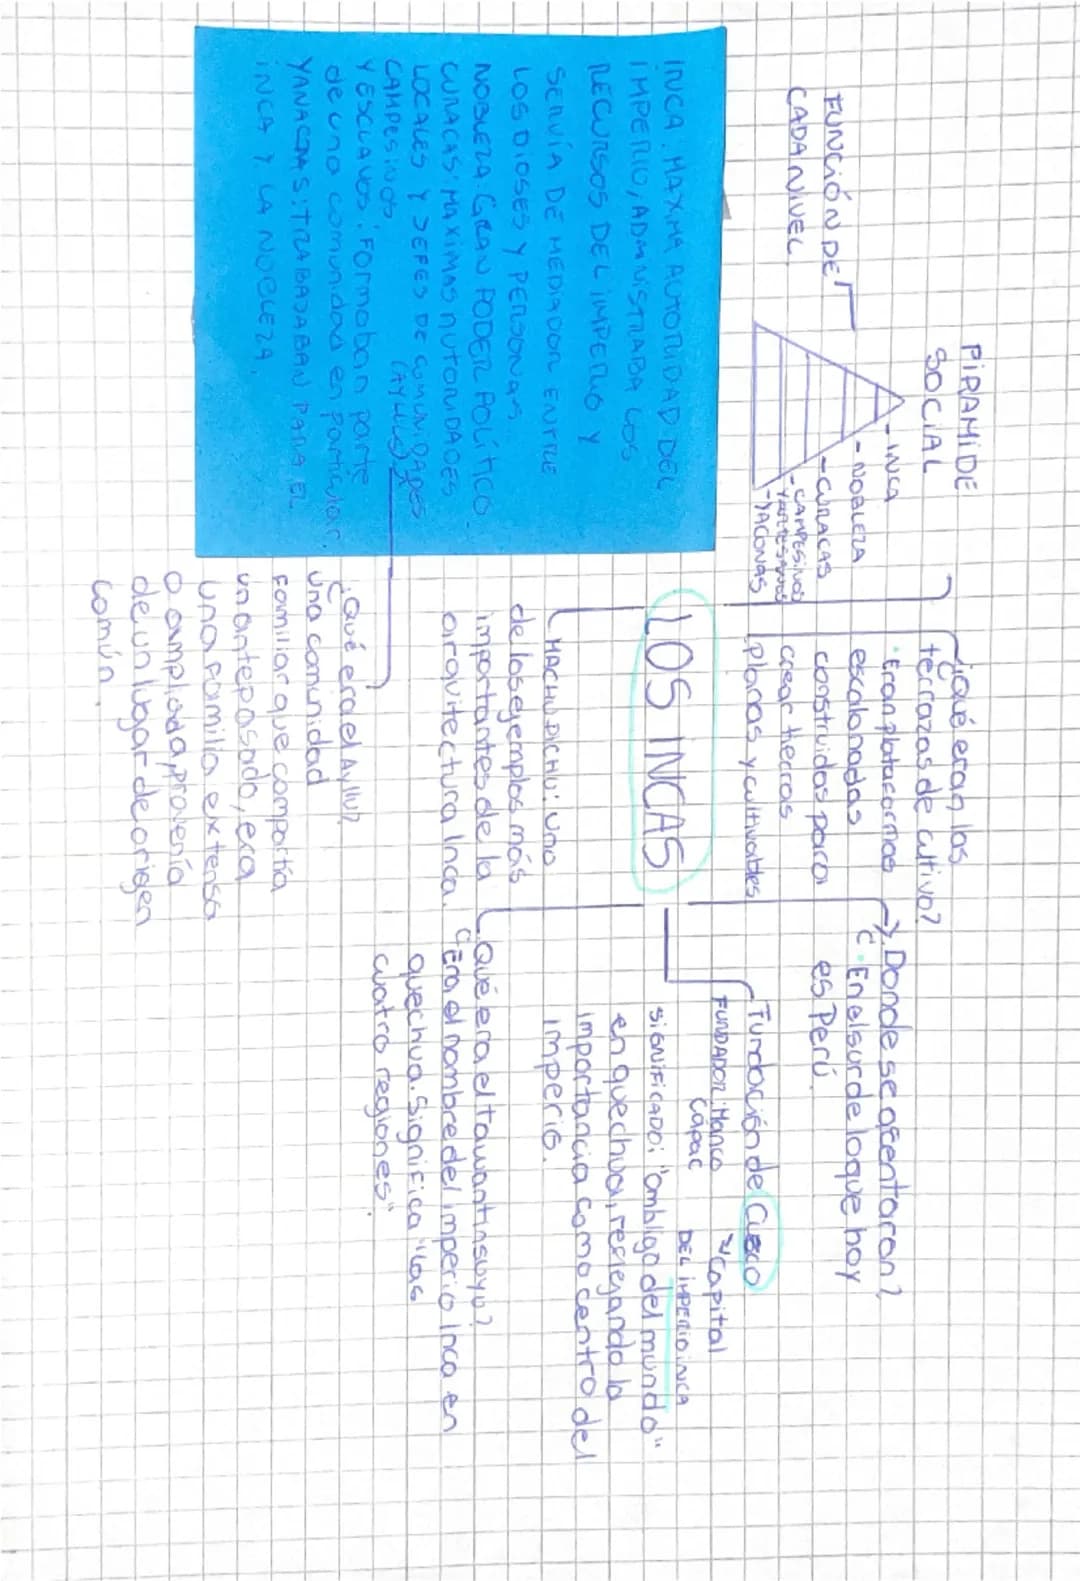 PIRAMIDE
SOCIAL
- INCA
- NOBLEZA
- CURACAS
- CAMPESINOS
Y ARTESANOS
- YACONAS
FUNCIÓN DE
CADA NIVEL
INCA: MAXIMA AUTORIDAD DEL
IMPERIO, ADMINISTRABA LOS
RECURSOS DEL IMPERIO Y
SERVÍA DE MEDIADOR ENTRE
LOS DIOSES Y PERSONAS
NOBLEZA: GRAN PODER POLÍTICO.
CURACAS: MAXIMAS AUTORIDADES
LOCALES Y JEFES DE COMUNIDADES
(AYLLUS)
CAMPESINOS
Y ESCLAVOS: Formaban parte
de una comunidad en particular.
YANACAS: TRABAJABAN PARA EL
INCA Y LA NOBLEZA.
¿Qué eran las
terrazas de cultivo?
• Eran plataformas
escalonadas
construidas para
crear tierras
planas y cultivables
LOS INCAS
MACHU PICHU: uno
de los ejemplos más
importantes de la
arquitectura Inca.
¿Qué era el Ayllu?
una comunidad
familiar que compartía
un antepasado, era
una familia extensa
o ampliada, provenía
de un lugar de origen
común.
¿Donde se asentaron?
• En el sur de lo que hoy
es Perú.
Fundación de Cusco
FUNDADOR: Manco
Cápac
Capital
DEL IMPERIO INCA
SIGNIFICADO: "ombligo del mundo"
en quechua, reflejando la
importancia como centro del
imperio.
¿Qué era el tawantinsuyu?
Era el nombre del imperio Inca en
quechua. Significa "las
cuatro regiones".